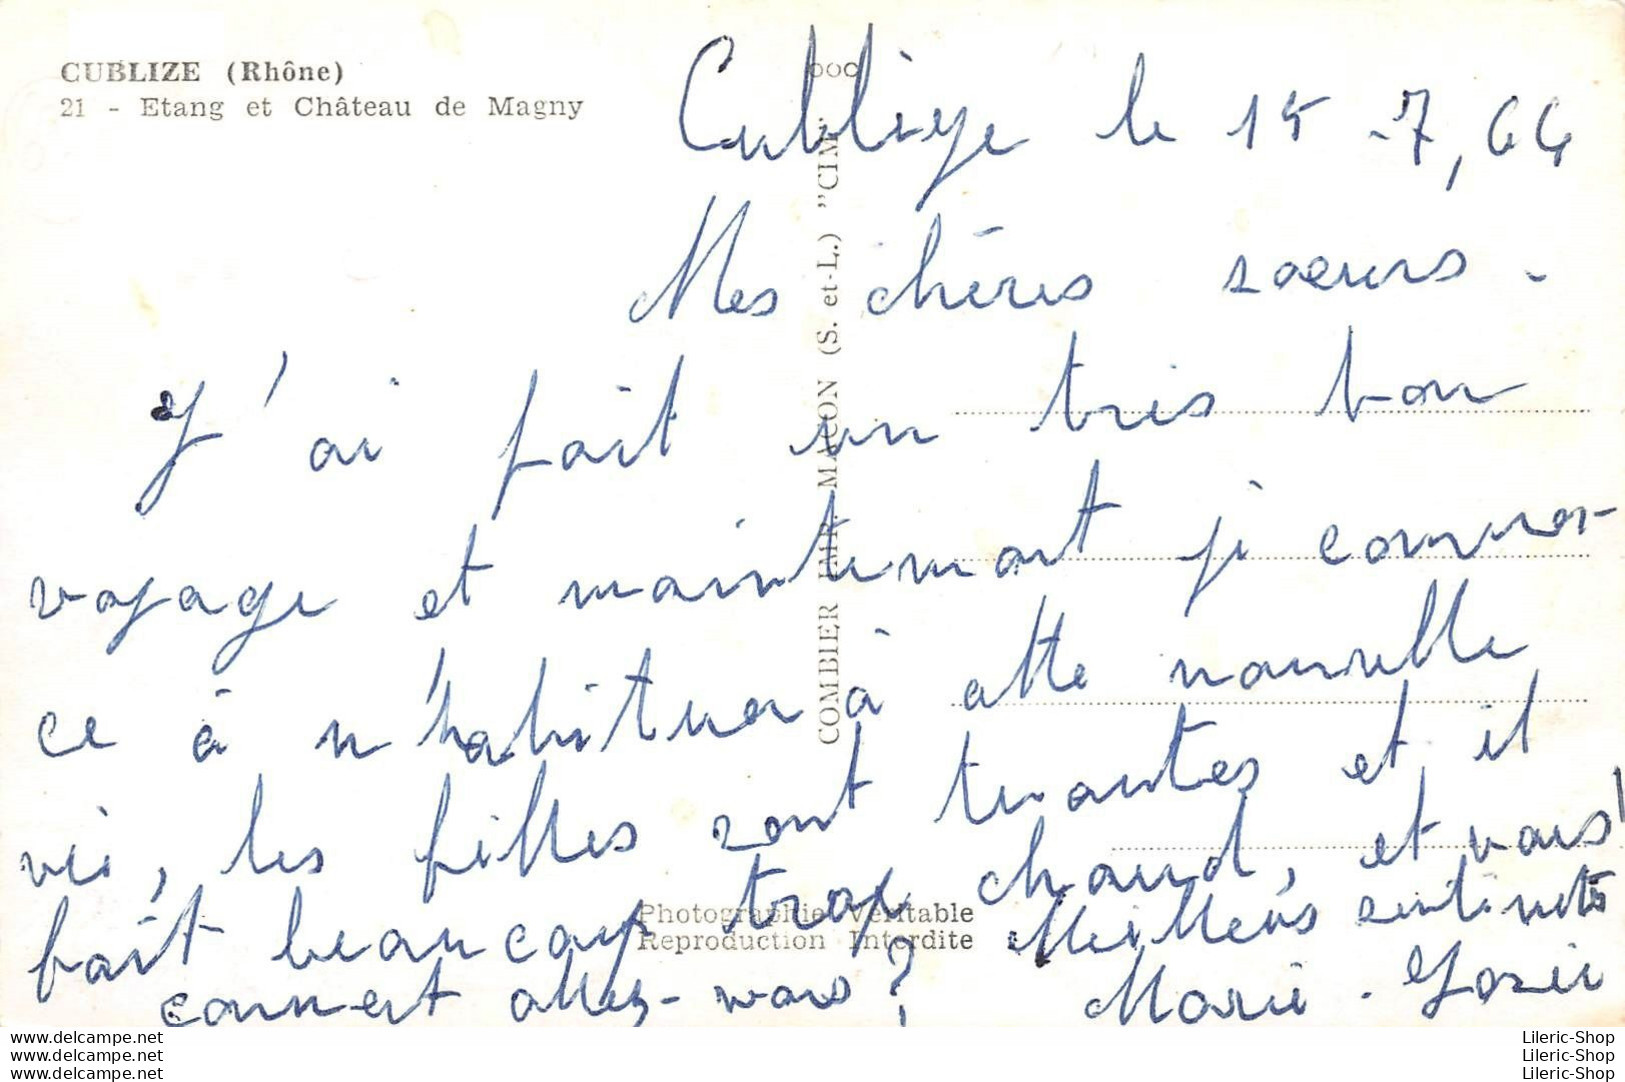 CUBLIZE (Rhône)
21 - Etang et Château de Magny
COMBIER IMP. MACON (S. et-L.) "CIM"
Cublize le 15 -7, 64
Mes chères soeurs -
J'ai fait un très bon
voyage et maintenant je commen-
ce à m'habituer à cette nouvelle
vie, les filles sont tenantes et il
fait beaucoup trop chaud, et vous!
comment allez-vous? Meilleurs sentiments
Marie - Josée
Photographie Véritable
Reproduction Interdite
Lileric-Shop.delcampe.net
Lileric-Shop.delcampe.net
Lileric-Shop.delcampe.net
Lileric-Shop
Lileric-Shop
Lileric-Shop